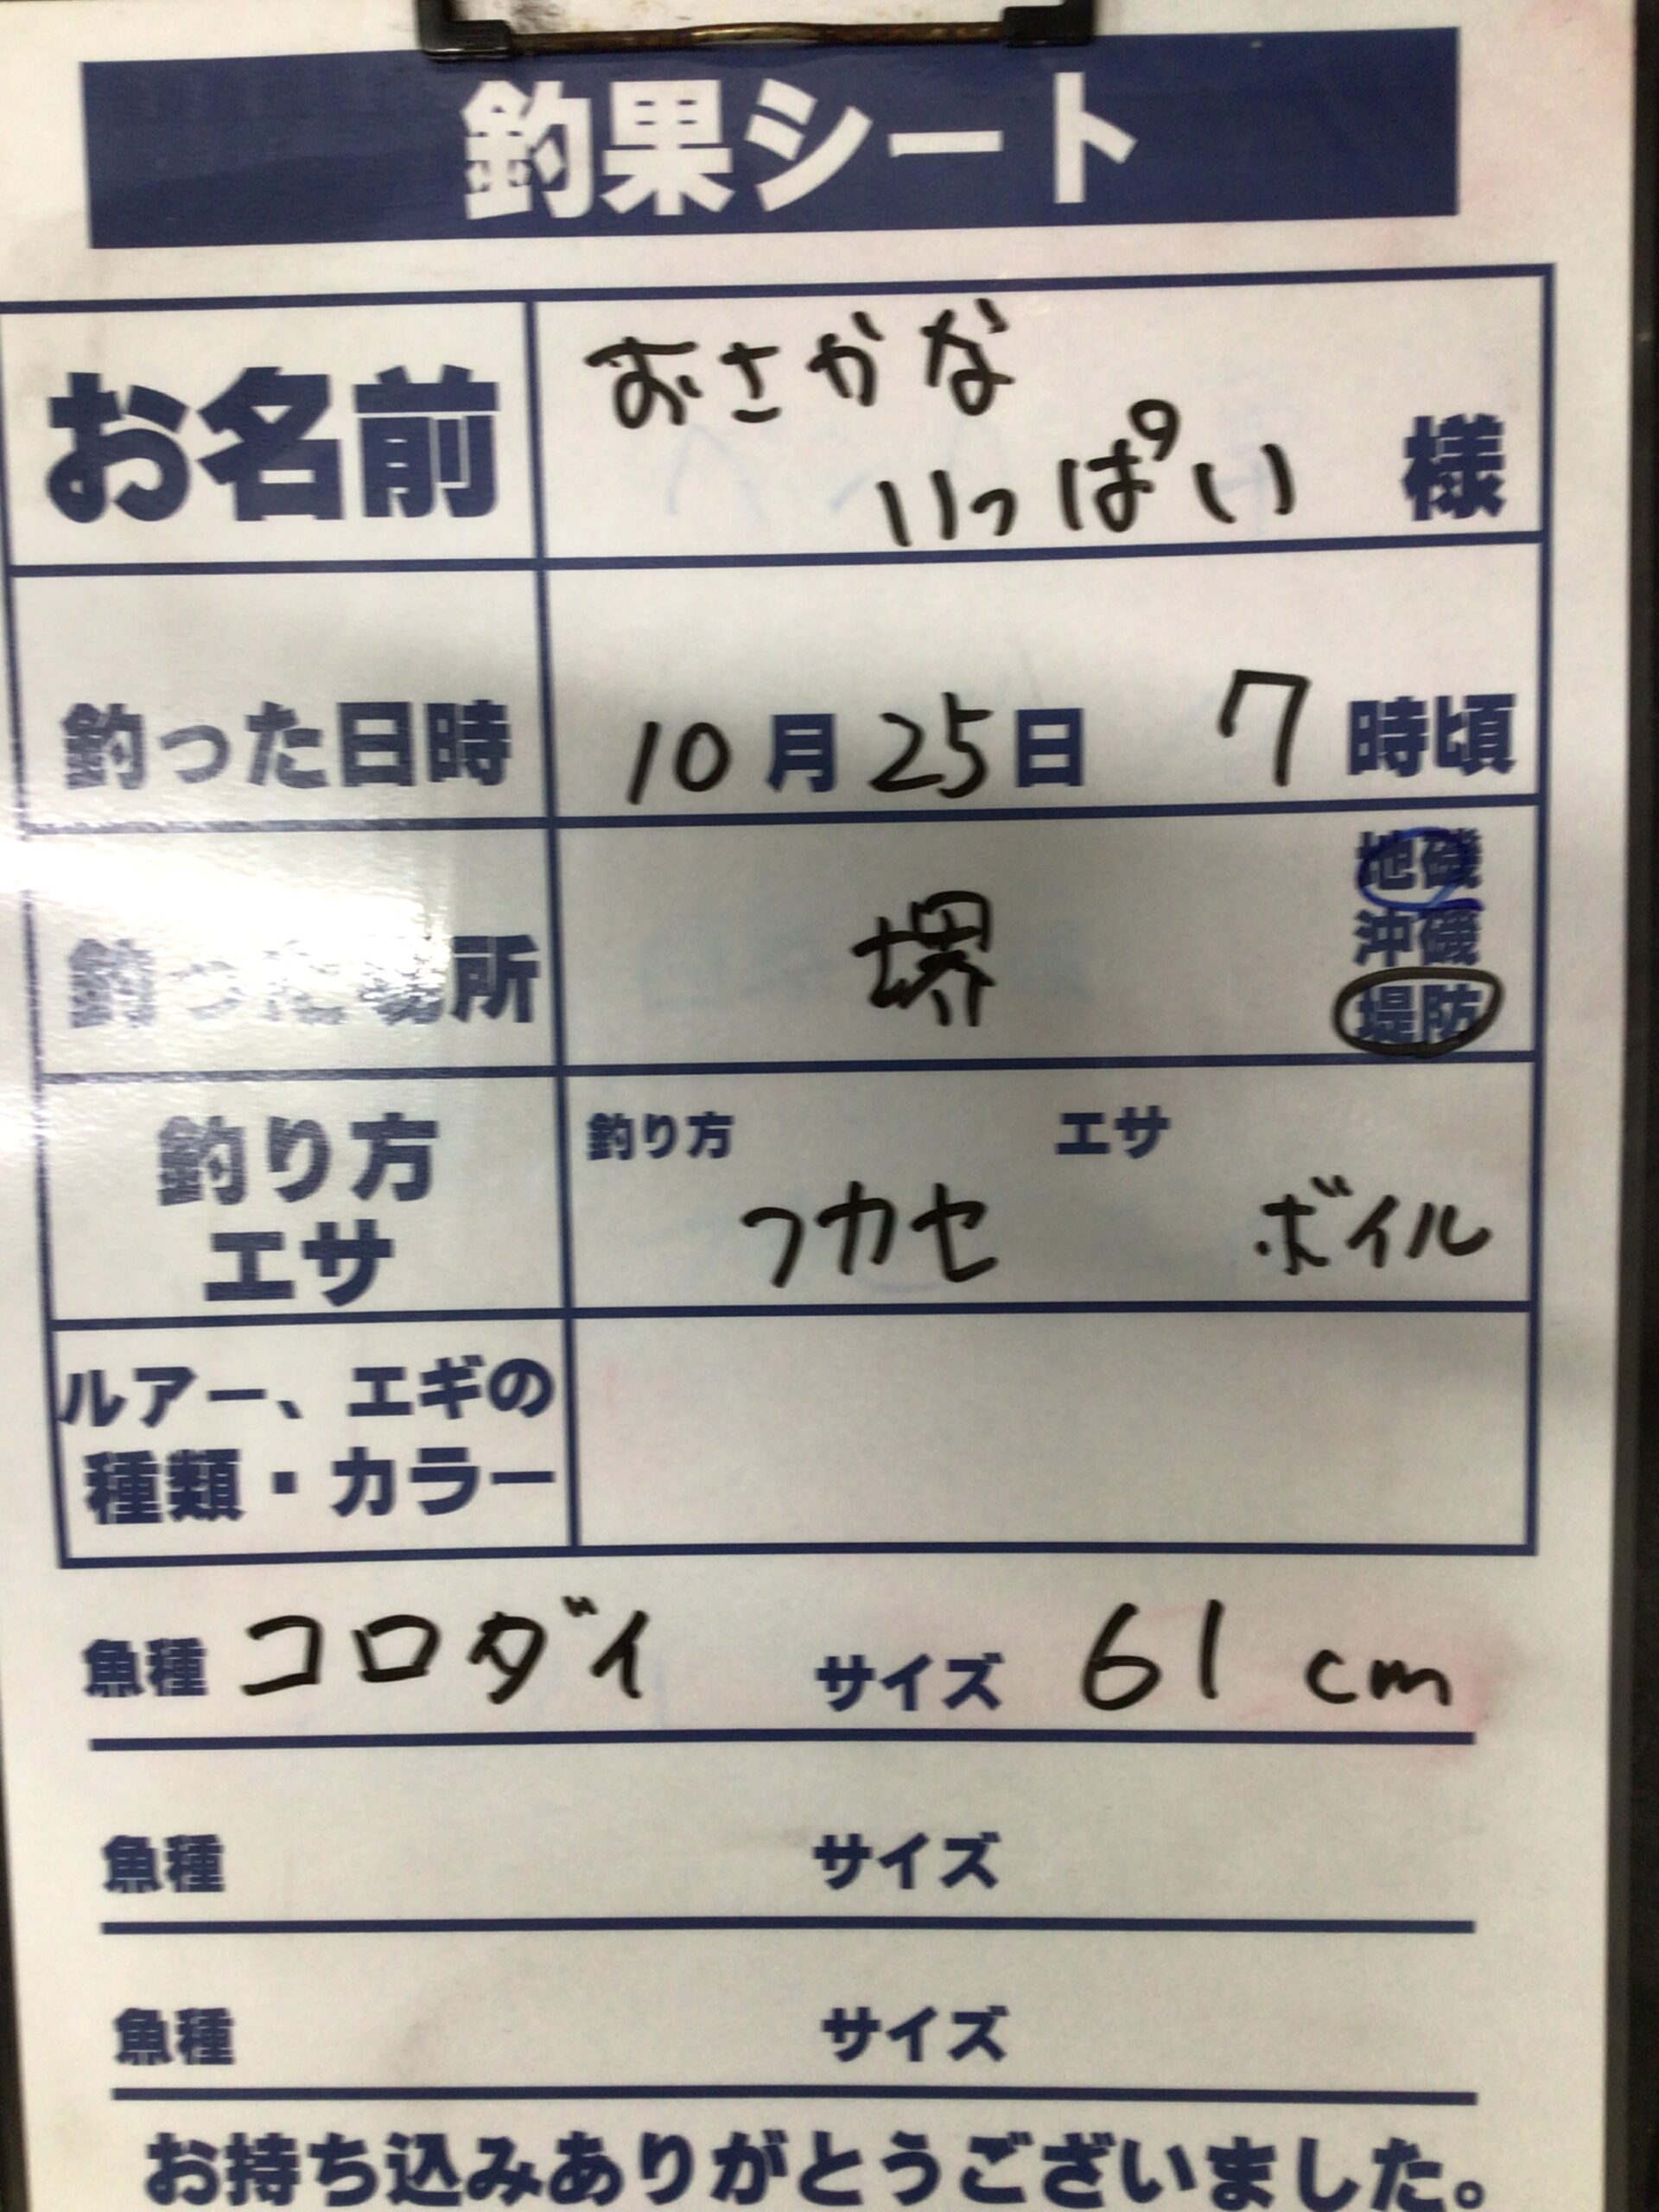 釣果シート
お名前
おさかな
いっぱい 様
釣った日時 10月25日 7時頃
地磯
沖磯
釣った場所 堺 堤防
釣り方 エサ
釣り方 フカセ ボイル
エサ
ルアー、エギの
種類・カラー
魚種 コロダイ サイズ 61cm
魚種 サイズ
魚種 サイズ
お持ち込みありがとうございました。